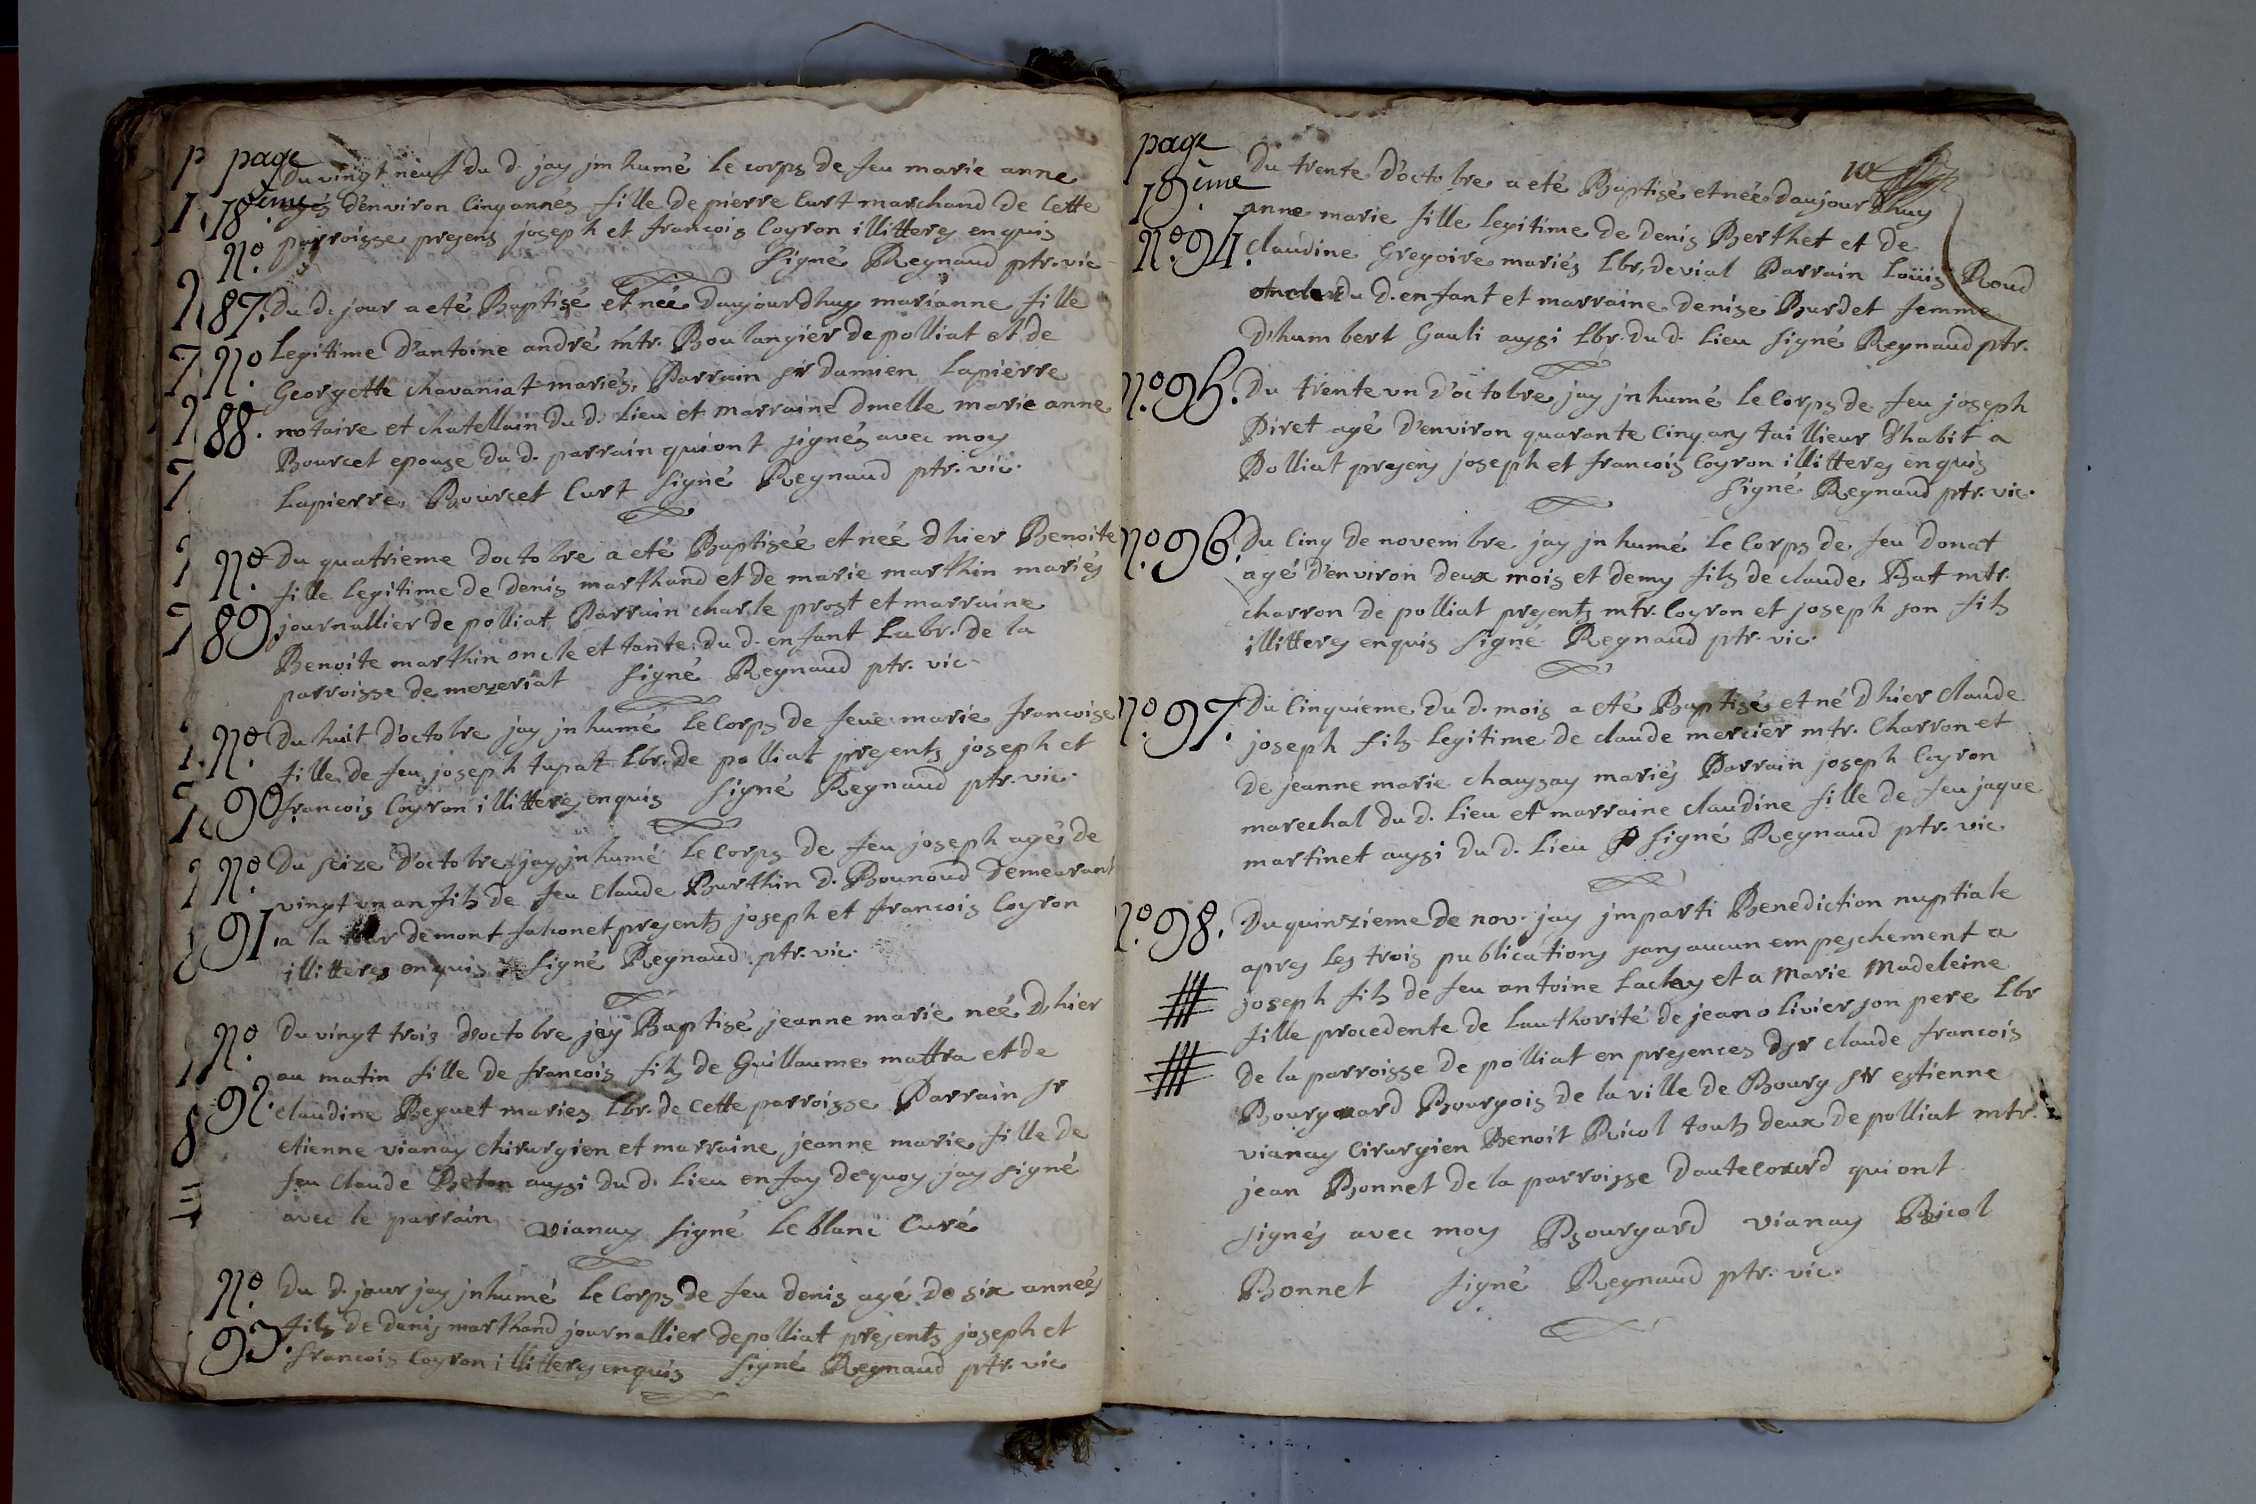 page
18.ème
Du vingt neuf du d. jay jnhumé le corps de feu marie anne
agés d'environ cinq annés fille de pierre Curt marchand de Cette
parroisse presens joseph et francois Coyron illitterez enquis
signé Regnaud ptr. vic
No. 87. Du d. jour a eté Baptisé et née daujourdhuy marianne fille
legitime d'antoine andré mtr. Boulangier de polliat et de
No. 88.
Georgette chavaniat mariés, Parrain sr damien Lapierre
notaire et chatellain du d. Lieu et marraine dmelle marie anne
Bourcet epouse du d. parrain qui ont signés avec moy
Lapierre, Bourcet Curt signé Regnaud ptr. vic.
No. 89. Du quatrieme doctobre a eté Baptiseé et née dhier Benoite
fille legitime de denis marthand et de marie marthin mariés
journallier de polliat Parrain charle prost et marraine
Benoite marthin oncle et tante du d. enfant Labr. de la
parroisse de mezeriat signé Regnaud ptr. vic
No. 90 Du huit d'octobre jay jnhumé le Corps de feue marie francoise
fille de feu joseph tupat Lbr. de polliat presents joseph et
francois Coyron illitterez enquis signé Regnaud ptr. vic.
No. 91. Du seize d'octobre jay jnhumé le Corps de feu joseph agés de
vingt un an fils de feu Claude Burthin d. Bounoud demeurant
a la tour demont falconet presents joseph et francois Coyron
illitteres enquis signé Regnaud ptr. vic.
No. 92. Du vingt trois d'octobre jey Baptisé jeanne marie neé d'hier
au matin fille de francois fils de Guillaume mattra et de
claudine Beguet mariez Lbr. de cette parroisse Parrain sr
etienne vianay chirurgien et marraine jeanne marie fille de
feu Claude Beton aussi du d. Lieu en foy dequoy jay signé
avec le parrain vianay signé Le blanc Curé
No. 93. Du d. jour jay jnhumé le Corps de feu denis agé de six anneés
fils de denis marthand journallier de polliat presents joseph et
francois Coyron illitterez enquis signé Regnaud ptr. vic
page
19.ème
10
Du trente d'octobre a eté Baptisé et née daujourdhuy
No. 94. anne marie fille legitime de denis Berthet et de
claudine Gregoire mariés Lbr, devial Parrain Loüis Roud
oncle du d. enfant et marraine denise Burdet femme
d'humbert Gauli aussi Lbr. du d. Lieu signé Regnaud ptr.
No. 95. Du trente un d'octobre jay jnhumé le Corps de feu joseph
Piret agé d'environ quarante cinq ans taillieur d'habit a
Polliat presens joseph et francois Coyron illitteres enquis
signé Regnaud ptr. vic.
No. 96. Du cinq de novembre jay jnhumé le Corps de feu donat
agé d'environ deux mois et demy fils de claude Bat mtr.
charron de polliat presents mtr. Coyron et joseph son fils
illitteres enquis signé Regnaud ptr. vic.
No. 97. Du Cinquieme du d. mois a eté Baptisé et né d'hier claude
joseph fils legitime de claude mercier mtr. Charron et
de jeanne marie chaussay mariés Parrain joseph Coyron
marechal du d. Lieu et marraine claudine fille de feu jaque
martinet aussi du d. Lieu signé Regnaud ptr. vic
No. 98. Du quinzieme de nov. jay jmparti Benediction nuptiale
apres les trois publications sans aucun empeschement a
joseph fils de feu antoine Lachay et a Marie Madeleine
fille procedente de Lauthorité de jean olivier son pere Lbr
de la parroisse de polliat en presences dsr claude francois
Bourgoard Bourgois de la ville de Bourg sr estienne
vianay Cirurgien Benoit Ricol touts deux de polliat mtr.
jean Bonnet de la parroisse dautecourd qui ont
signés avec moy Bourgard vianay Ricol
Bonnet signé Regnaud ptr. vic.